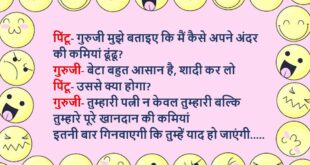 पिंटू- गुरुजी मुझे बताइए कि मैं कैसे अपने अंदर
की कमियां ढूंढूं?
गुरुजी- बेटा बहुत आसान है, शादी कर लो
पिंटू- उससे क्या होगा?
गुरुजी- तुम्हारी पत्नी न केवल तुम्हारी बल्कि
तुम्हारे पूरे खानदान की कमियां
इतनी बार गिनवाएगी कि तुम्हें याद हो जाएंगी.....